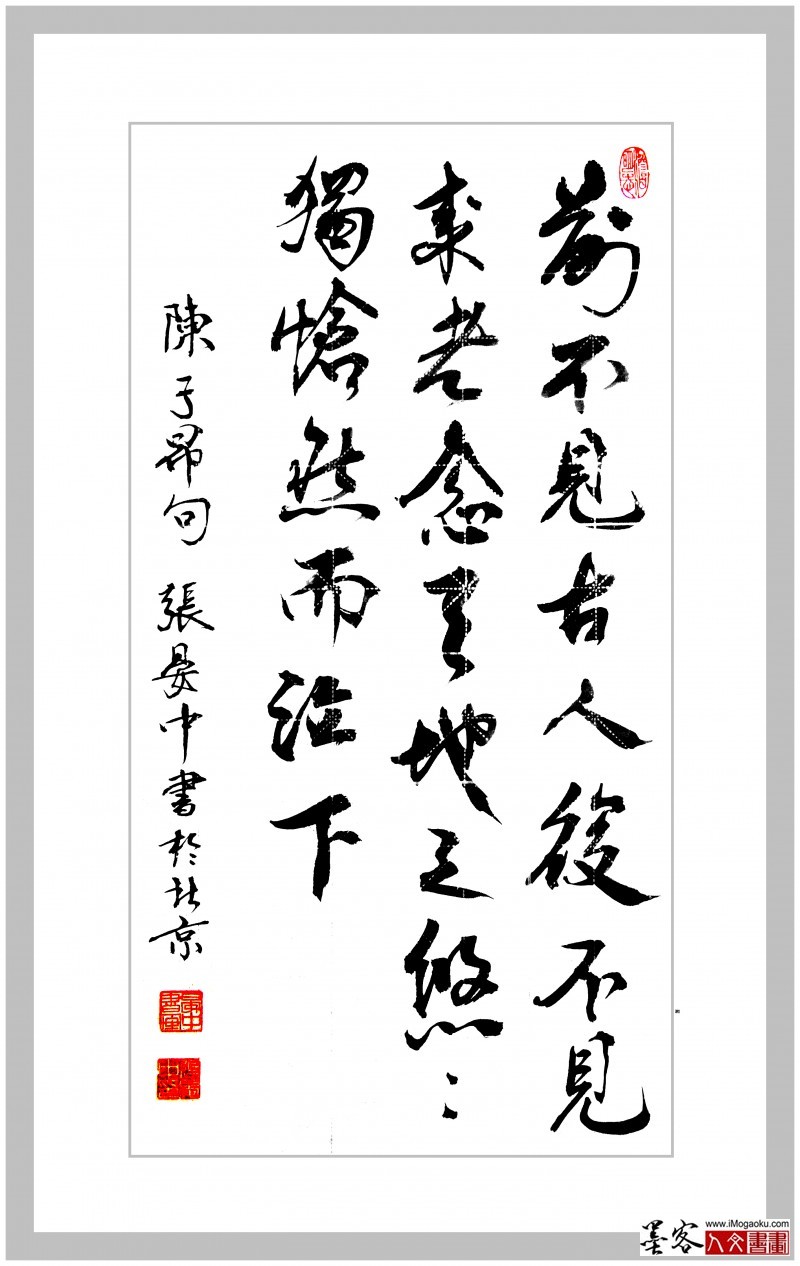 前不見古人後不見
来者念天地之悠〻
獨愴然而泣下
陳子昂句 張晏中書於北京
www.iMogaoku.com
墨客 人文書畫